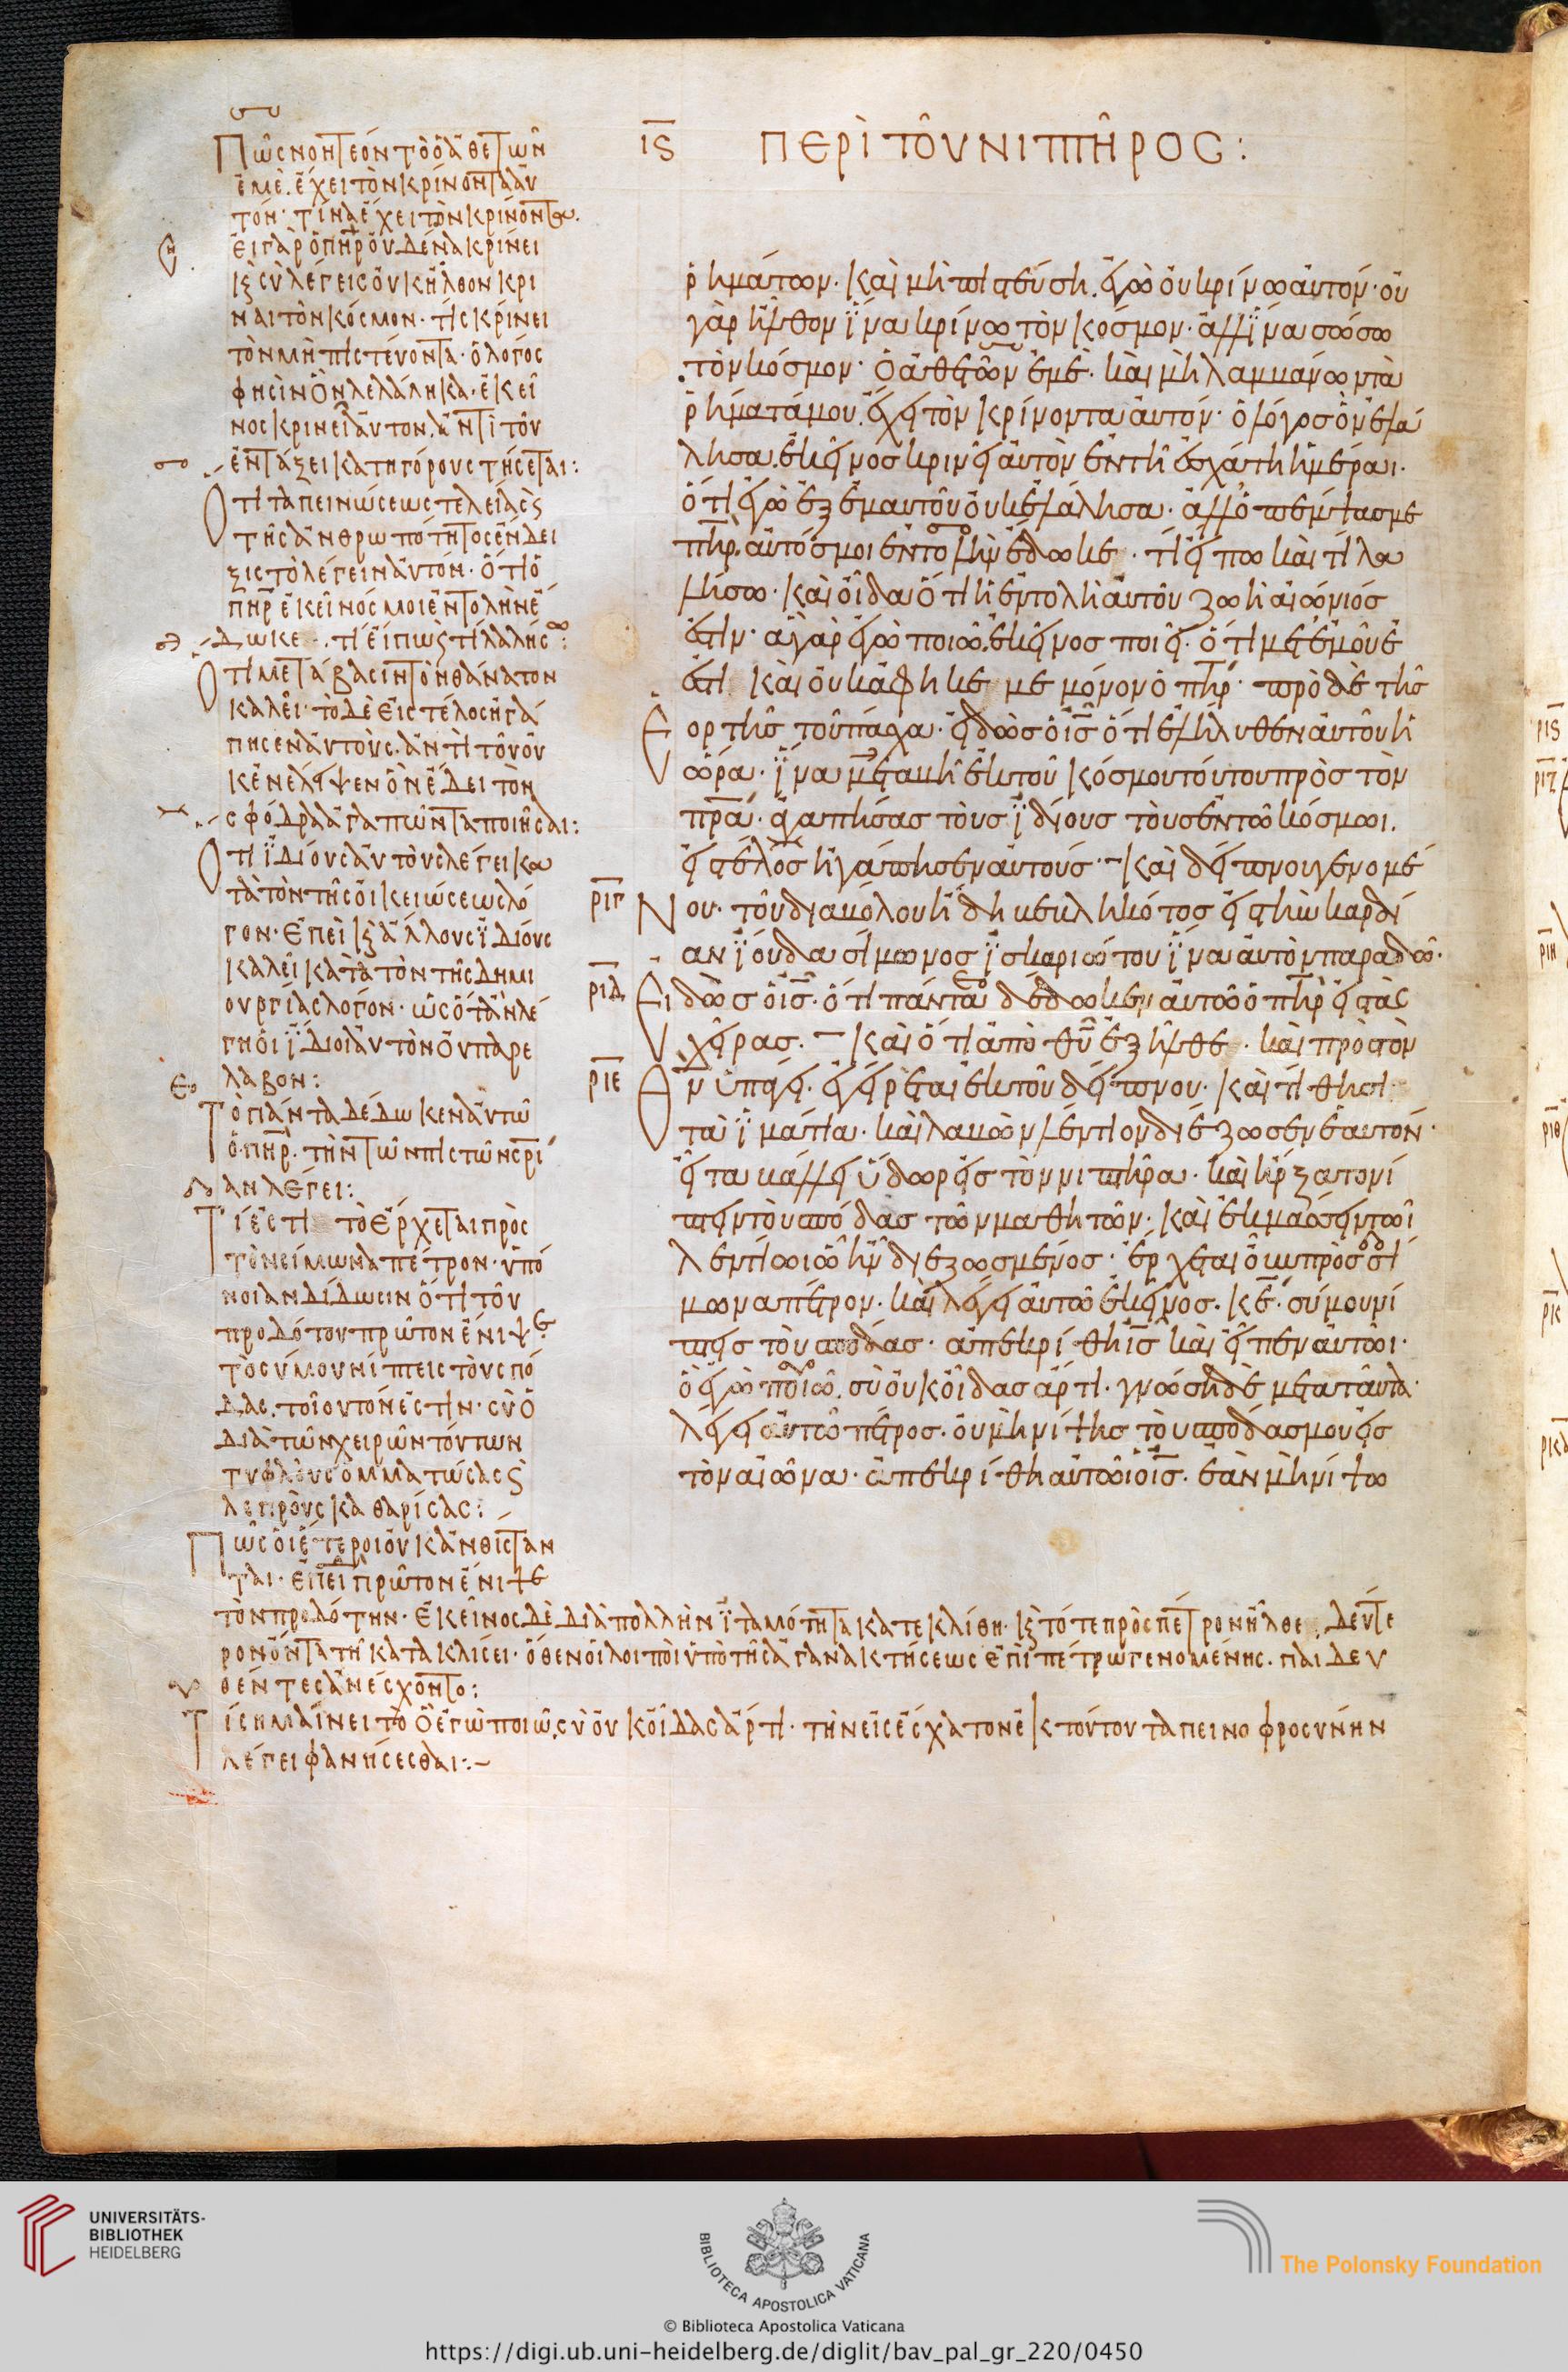 ις ΠΕΡΙ ΤΟΥ ΝΙΠΤΗΡΟC:
Πῶς νοητέον τὸ ὁ ἀθετῶν
ἐμὲ. ἔχει τὸν κρίνοντα αὐ
τόν· τίνα ἔχει τὸν κρίνοντα.
εἰ γὰρ ὁ πηρ οὐδένα κρίνει
κ σὺ λέγεις οὐκ ἦλθον κρι
ναι τὸν κόσμον· τίς κρίνει
τὸν μὴ πιστεύοντα· ὁ λόγος
φησὶν ὃν λελάληκα· ἐκεῖ
νος κρινεῖ αὐτον. ἀντὶ τοῦ
ἐν τάξει κατηγόρου στήσεται:
Ὅτι ταπεινώσεως τελείας
τῆς ἀνθρωπότητος ἐνδει
ξις τὸ λέγειν αὐτόν· ὅτι ὁ
πηρ ἐκεῖνός μοι ἐντολὴν ἔ
δωκε. τί εἴπω τί λαλήσω:
Ὅτι μετάβασιν τὸν θάνατον
καλεῖ· τὸ δὲ εἰς τέλος ἠγά
πησεν αὐτοὺς. ἀντὶ τοῦ οὐ
κ ἐνέλιψεν ὃν ἔδει τὸν
σφόδρα ἀγαπῶντα ποιῆσαι:
Ὅτι ἰδίους αὐτοὺς λέγει κα
τὰ τὸν τῆς οἰκειώσεως λό
γον· ἐπεὶ κ ἄλλους ἰδίους
καλεῖ κατὰ τὸν τῆς δημι
ουργίας λόγον· ὡς ὅταν λέ
γη οἱ ἴδιοι αὐτὸν οὐ παρε
λαβον:
Τὸ πάντα δέδωκεν αὐτῶ
ὁ πηρ. τὴν τῶν πιστῶν σρί
αν λέγει:
Τί ἐστι τὸ ἔρχεται πρὸς
τὸν σίμωνα πέτρον· ὑπό
νοιαν δίδωσιν ὅτι τοῦ
προδότου πρῶτον ἔνιψε
τὸ σύ μου νίπτεις τοὺς πό
δας. τοιοῦτόν ἐστιν· σὺ ὁ
διὰ τῶν χειρῶν τούτων
τυφλοὺς ὀμματώσας
λεπροὺς καθαρίσας:
Πῶς οἱ ἕτεροι οὐκ ἀνθίσταν
ται· ἐπεὶ πρῶτον ἔνιψε
τὸν προδότην· ἐκεῖνος δὲ διὰ πολλὴν ἰταμότητα κατεκλίθη· κ τότε πρὸς πέτρον ἦλθε. δεύτε
ρον ὄντα τῆ κατακλίσει· ὅθεν οἱ λοιποὶ ὑπὸ τῆς ἀγανακτήσεως ἐπὶ πέτρω γενομένης. παιδευ
θέντες ἀνέσχοντο:
Τί σημαίνει τὸ ὃ ἐγὼ ποιῶ, σὺ οὐκ οἶδας ἄρτι· τὴν εἰς ἔσχατον ἐκ τούτου ταπεινοφροσύνην
λέγει φανήσεσθαι:
ῥημάτων· καὶ μὴ πιστεύση. ἐγὼ οὐ κρίνω αὐτόν· οὐ
γὰρ ἦλθον ἵνα κρίνω τὸν κόσμον· ἀλλ ἵνα σώσω
τὸν κόσμον· ὁ ἀθετῶν ἐμὲ· καὶ μὴ λαμβάνων τὰ
ῥήματά μου. ἔχει τὸν κρίνοντα αὐτόν· ὁ λόγος ὃν ἐλά
λησα. ἐκεῖνος κρινεῖ αὐτὸν ἐν τῆ ἐσχάτη ἡμέραι·
ὅτι ἐγὼ ἐξ ἐμαυτοῦ οὐκ ἐλάλησα· ἀλλ ὁ πέμψας με
πηρ. αὐτός μοι ἐντολὴν ἔδωκε· τί εἴπω καὶ τί λα
λήσω· καὶ οἶδα ὅτι ἡ ἐντολὴ αὐτοῦ ζωὴ αἰώνιός
ἐστιν· ἃ γὰρ ἐγὼ ποιῶ. ἐκεῖνος ποιεῖ· ὅτι μετ ἐμοῦ ἐ
στι καὶ οὐκ ἀφῆκε με μόνον ὁ πηρ· πρὸ δὲ τῆς
Ἑορτῆς τοῦ πάσχα· εἰδὼς ὁ ις ὅτι ἐλήλυθεν αὐτοῦ ἡ
ὥρα· ἵνα μεταβῆ ἐκ τοῦ κόσμου τούτου πρὸς τὸν
πρα· ἀγαπήσας τοὺς ἰδίους τοὺς ἐν τῶ κόσμωι.
εἰς τέλος ἠγάπησεν αὐτούς· καὶ δείπνου γενομέ
ριγ Νου· τοῦ διαβόλου ἤδη βεβληκότος εἰς τὴν καρδί
αν ἰούδα σίμωνος ἰσκαριώτου ἵνα αὐτὸν παραδῶ·
ριδ Εἰδὼς ὁ ις· ὅτι πάντα δέδωκεν αὐτῶ ὁ πηρ εἰς τὰς
χεῖρας. καὶ ὅτι ἀπὸ θυ ἐξῆλθε· καὶ πρὸς τὸν
ριε Θν ὑπάγει· ἐγείρεται ἐκ τοῦ δείπνου· καὶ τίθησι
τὰ ἱμάτια· καὶ λαβὼν λέντιον διέζωσεν ἑαυτόν·
εἶτα βάλλει ὕδωρ εἰς τὸν νιπτῆρα· καὶ ἤρξατο νί
πτειν τοὺς πόδας τῶν μαθητῶν· καὶ ἐκμάσσειν τῶι
λεντίωι ὧ ἦν διεζωσμένος· ἔρχεται οὖν πρὸς σί
μωνα πέτρον· καὶ λέγει αὐτῶ ἐκεῖνος· κε· σύ μου νί
πτεις τοὺς πόδας· ἀπεκρίθη ις καὶ εἶπεν αὐτῶι·
ὃ ἐγὼ ποιῶ. σὺ οὐκ οἶδας ἄρτι· γνώση δὲ μετὰ ταῦτα·
λέγει αὐτῶ πέτρος· οὐ μὴ νίψης τοὺς πόδας μου εἰς
τὸν αἰῶνα· ἀπεκρίθη αὐτῶι ὁ ις· ἐὰν μὴ νίψω
UNIVERSITÄTS-
BIBLIOTHEK
HEIDELBERG
BIBLIOTECA APOSTOLICA VATICANA
The Polonsky Foundation
© Biblioteca Apostolica Vaticana
https://digi.ub.uni-heidelberg.de/diglit/bav_pal_gr_220/0450